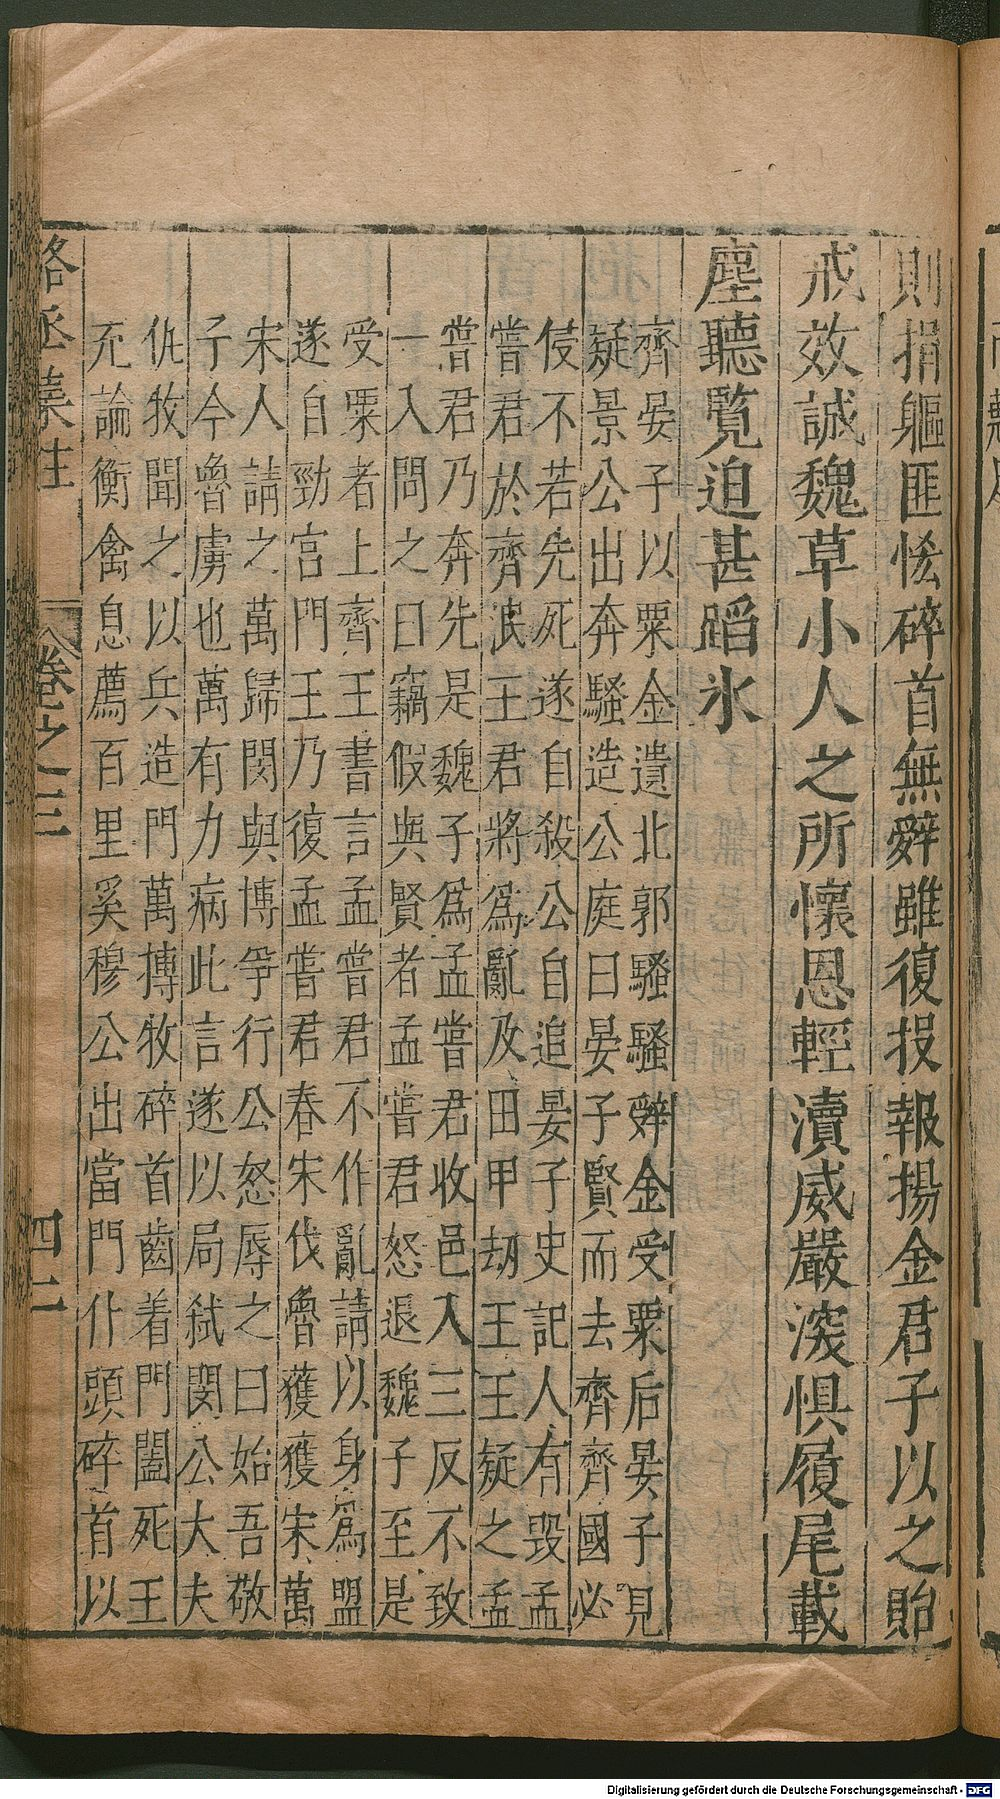 則捐軀匪恡碎首無辭雖復投報揚金君子以之貽
戒效誠魏草小人之所懷恩輕瀆威嚴深惧履尾載
塵聽覽迫甚蹈氷
齊晏子以粟金遺北郭騷騷辭金受粟后晏子見
疑景公出奔騷造公庭曰晏子賢而去齊齊國必
侵不若先死遂自殺公自追晏子史記人有毀孟
嘗君於齊湣王君將爲亂及田甲劫王王疑之孟
嘗君乃奔先是魏子爲孟嘗君收邑入三反不致
一入問之曰竊假與賢者孟嘗君怒退魏子至是
受粟者上齊王書言孟嘗君不作亂請以身爲盟
遂自勁宮門王乃復孟嘗君春宋伐魯獲獲宋萬
宋人請之萬歸閔與博爭行公怒辱之曰始吾敬
子今魯虜也萬有力病此言遂以局弒閔公大夫
仇牧聞之以兵造門萬搏牧碎首齒着門闔死王
充論衡禽息薦百里奚穆公出當門仆頭碎首以
駱丞集註
卷之三
四二
Digitalisierung gefördert durch die Deutsche Forschungsgemeinschaft - DFG